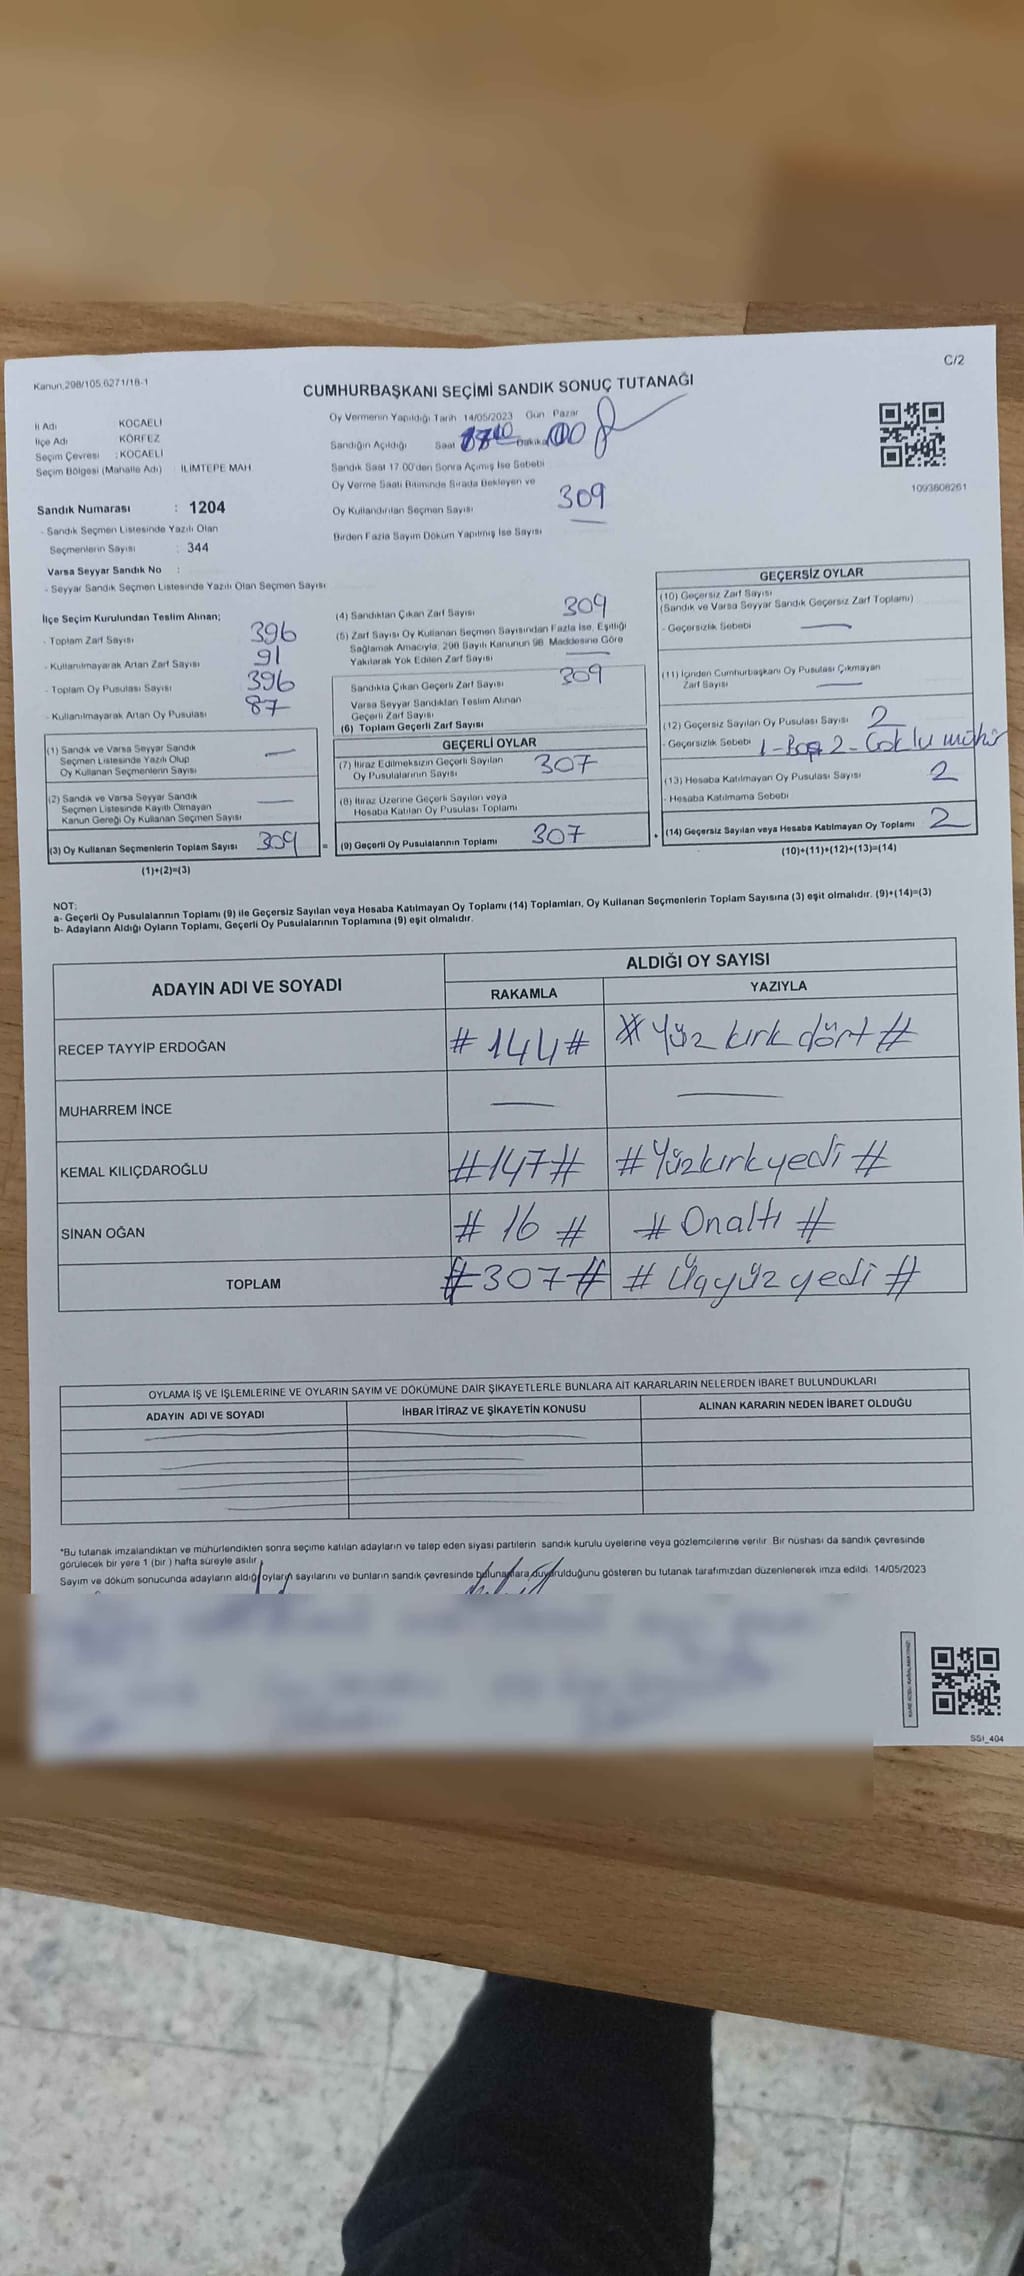 Kanun,298/105,6271/18-1
C/2
CUMHURBAŞKANI SEÇİMİ SANDIK SONUÇ TUTANAĞI
İl Adı KOCAELİ
İlçe Adı KÖRFEZ
Seçim Çevresi : KOCAELİ
Seçim Bölgesi (Mahalle Adı) İLİMTEPE MAH
Sandık Numarası : 1204
- Sandık Seçmen Listesinde Yazılı Olan
Seçmenlerin Sayısı : 344
Varsa Seyyar Sandık No :
- Seyyar Sandık Seçmen Listesinde Yazılı Olan Seçmen Sayısı
Oy Vermenin Yapıldığı Tarih 14/05/2023 Gün Pazar
Sandığın Açıldığı Saat Dakika
Sandık Saat 17.00'den Sonra Açımış İse Sebebi
Oy Verme Saati Bitiminde Sırada Bekleyen ve
Oy Kullandırılan Seçmen Sayısı 309
Birden Fazla Sayım Döküm Yapılmış İse Sayısı
1093608261
İlçe Seçim Kurulundan Teslim Alınan;
- Toplam Zarf Sayısı 396
- Kullanılmayarak Artan Zarf Sayısı 91
- Toplam Oy Pusulası Sayısı 396
- Kullanılmayarak Artan Oy Pusulası 87
(1) Sandık ve Varsa Seyyar Sandık
Seçmen Listesinde Yazılı Olup
Oy Kullanan Seçmenlerin Sayısı —
(2) Sandık ve Varsa Seyyar Sandık
Seçmen Listesinde Kayıtlı Olmayan
Kanun Gereği Oy Kullanan Seçmen Sayısı —
(3) Oy Kullanan Seçmenlerin Toplam Sayısı 309 =
(1)+(2)=(3)
(4) Sandıktan Çıkan Zarf Sayısı 309
(5) Zarf Sayısı Oy Kullanan Seçmen Sayısından Fazla İse, Eşitliği
Sağlamak Amacıyla, 298 Sayılı Kanunun 98. Maddesine Göre
Yakılarak Yok Edilen Zarf Sayısı —
Sandıkta Çıkan Geçerli Zarf Sayısı 309
Varsa Seyyar Sandıktan Teslim Alınan
Geçerli Zarf Sayısı
(6) Toplam Geçerli Zarf Sayısı
GEÇERLİ OYLAR
(7) İtiraz Edilmeksizin Geçerli Sayılan
Oy Pusulalarının Sayısı 307
(8) İtiraz Üzerine Geçerli Sayılan veya
Hesaba Katılan Oy Pusulası Toplamı
(9) Geçerli Oy Pusulalarının Toplamı 307 +
GEÇERSİZ OYLAR
(10) Geçersiz Zarf Sayısı
(Sandık ve Varsa Seyyar Sandık Geçersiz Zarf Toplamı)
- Geçersizlik Sebebi —
(11) İçinden Cumhurbaşkanı Oy Pusulası Çıkmayan
Zarf Sayısı —
(12) Geçersiz Sayılan Oy Pusulası Sayısı 2
- Geçersizlik Sebebi 1-Boş 2-Çoklu mühür
(13) Hesaba Katılmayan Oy Pusulası Sayısı 2
- Hesaba Katılmama Sebebi
(14) Geçersiz Sayılan veya Hesaba Katılmayan Oy Toplamı 2
(10)+(11)+(12)+(13)=(14)
NOT:
a- Geçerli Oy Pusulalarının Toplamı (9) ile Geçersiz Sayılan veya Hesaba Katılmayan Oy Toplamı (14) Toplamları, Oy Kullanan Seçmenlerin Toplam Sayısına (3) eşit olmalıdır. (9)+(14)=(3)
b- Adayların Aldığı Oyların Toplamı, Geçerli Oy Pusulalarının Toplamına (9) eşit olmalıdır.
ADAYIN ADI VE SOYADI ALDIĞI OY SAYISI
RAKAMLA YAZIYLA
RECEP TAYYİP ERDOĞAN # 144 # # Yüz kırk dört #
MUHARREM İNCE — —
KEMAL KILIÇDAROĞLU # 147 # # Yüzkırkyedi #
SİNAN OĞAN # 16 # # Onaltı #
TOPLAM # 307 # # Üçyüzyedi #
OYLAMA İŞ VE İŞLEMLERİNE VE OYLARIN SAYIM VE DÖKÜMÜNE DAİR ŞİKAYETLERLE BUNLARA AİT KARARLARIN NELERDEN İBARET BULUNDUKLARI
ADAYIN ADI VE SOYADI İHBAR İTİRAZ VE ŞİKAYETİN KONUSU ALINAN KARARIN NEDEN İBARET OLDUĞU
*Bu tutanak imzalandıktan ve mühürlendikten sonra seçime katılan adayların ve talep eden siyasi partilerin sandık kurulu üyelerine veya gözlemcilerine verilir. Bir nüshası da sandık çevresinde
görülecek bir yere 1 (bir ) hafta süreyle asılır.
Sayım ve döküm sonucunda adayların aldığı oyların sayılarını ve bunların sandık çevresinde bulunanlara duyurulduğunu gösteren bu tutanak tarafımızdan düzenlenerek imza edildi. 14/05/2023
SS1_404